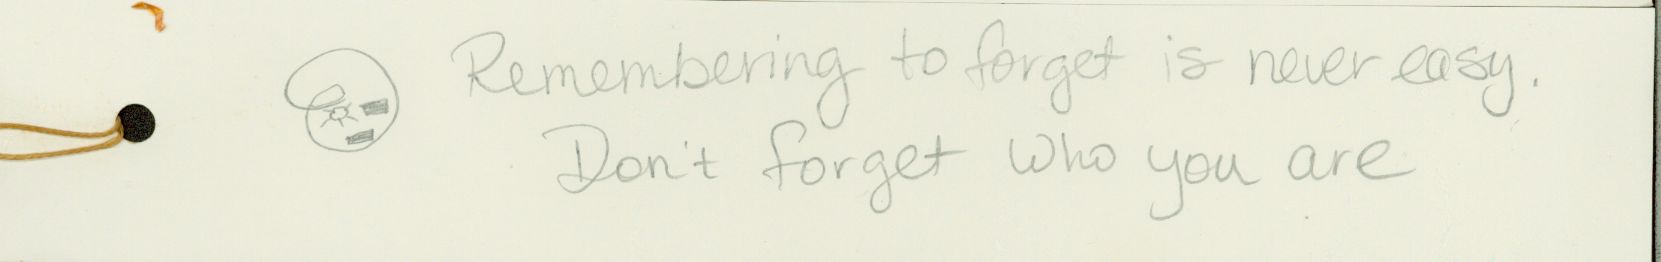 Remembering to forget is never easy.
Don't forget who you are